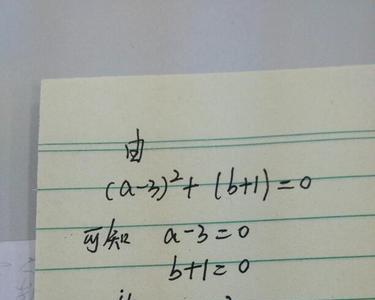 由
(a-3)²+(b+1)=0
可知 a-3=0
b+1=0